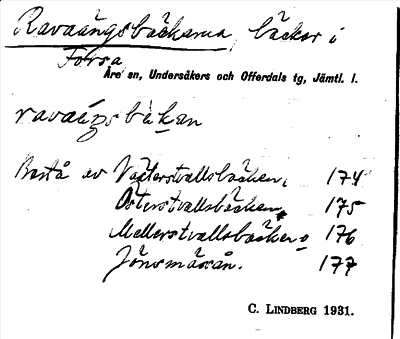 Ravaängsbäckarna, bäckar i
Forsa
Åre sn, Undersåkers och Offerdals tg, Jämtl. l.
ravaéŋsbäkan
Bestå av Västerstvallsbäcken, 174
Österstvallsbäcken, 175
Mellerstvallsbäcken o 176
Jönsmässån. 177
C. LINDBERG 1931.